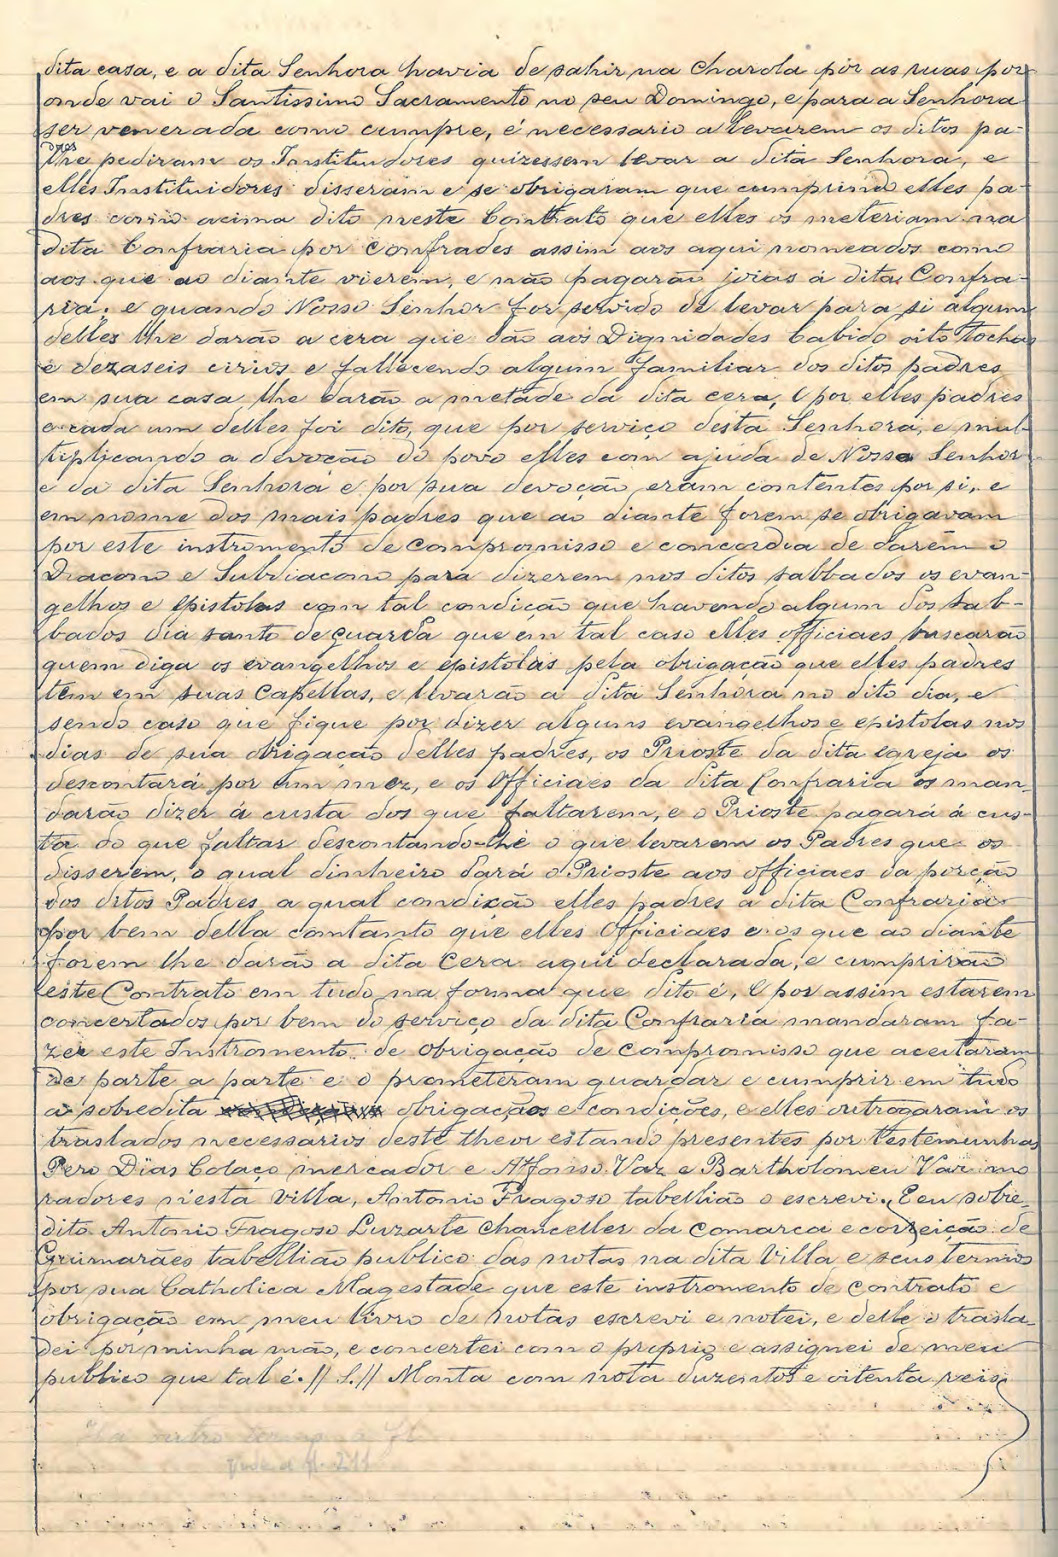 dita casa, e a dita Senhora havia de sahir na charola por as ruas por
onde vai o Santissimo Sacramento no seu Domingo, e para a Senhora
ser venerada como cumpre, é necessario a levarem os ditos pa-
dres
lhe pediram os Instituidores quizessem levar a dita Senhora, e
elles Instituidores disseram e se obrigaram que cumprindo elles pa-
dres como acima dito neste Contrato que elles os meteriam na
dita Confraria por Confrades assim aos aqui nomeados como
aos que ao diante vierem, e não pagarão joias á dita Confra-
ria; e quando Nosso Senhor for servido de levar para si algum
delles lhe darão a cera que dão aos Dignidades Cabido oito tochas
e dezaseis cirios e fallecendo algum familiar dos ditos padres
em sua casa lhe darão a metade da dita cera, E por elles padres
e cada um delles foi dito, que por serviço desta Senhora, e mul-
tiplicando a devoção do povo elles com ajuda de Nosso Senhor
e da dita Senhora e por sua devoção eram contentos por si, e
em nome dos mais padres que ao diante forem se obrigavam
por este instromento de compromisso e concordia de darem o
Diacono e Subdiacono para dizerem nos ditos sabbados os evan-
gelhos e epistolas com tal condição que havendo algum dos sab-
bados dia santo de guarda que em tal caso elles officiaes buscarão
quem diga os evangelhos e epistolas pela obrigação que elles padres
tem em suas Capellas, e levarão a dita Senhora no dito dia, e
sendo caso que fique por dizer alguns evangelhos e epistolas nos
dias de sua obrigação delles padres, os Prioste da dita egreja os
descontará por um mez, e os Officiaes da dita Confraria os man-
darão dizer á custa dos que faltarem, e o Prioste pagará á cus-
ta do que faltar descontando-lhe o que levarem os Padres que os
disserem, o qual dinheiro dará o Prioste aos officiaes da porção
dos ditos Padres a qual condixão elles padres a dita Confraria
por bem della comtanto que elles Officiaes e os que ao diante
forem lhe darão a dita Cera aqui declarada, e cumprirão
este Contrato em tudo na forma que dito é, E por assim estarem
concertados por bem do serviço da dita Confraria mandaram fa-
zer este Instromento de obrigação de compromisso que aceitaram
de parte a parte e o prometeram guardar e cumprir em tudo
a sobredita obrigações e condições, e elles outrogaram os
traslados necessarios deste theor estando presentes por testemunhas
Pero Dias Colaço mercador e Affonso Vaz e Bartholomeu Vaz mo
radores n'esta Villa, Antonio Fragoso tabellião o escrevi. E eu sobre-
dito Antonio Fragoso Luzarte Chanceller da Comarca e correição de
Guimarães tabellião publico das notas na dita Villa e seus termos
por sua Catholica Magestade que este instromento de contrato e
obrigação em meu livro de notas escrevi e notei, e delle o trasla-
dei por minha mão, e concertei com o proprio e assignei de meu
publico que tal é. // S. // Monta com nota duzentos e oitenta reis
Ha outro
Vide a fl. 211